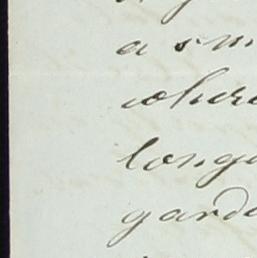 a sm
where
longe
garde